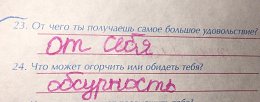 23. От чего ты получаешь самое большое удовольствие?
от себя
24. Что может огорчить или обидеть тебя?
обсурность